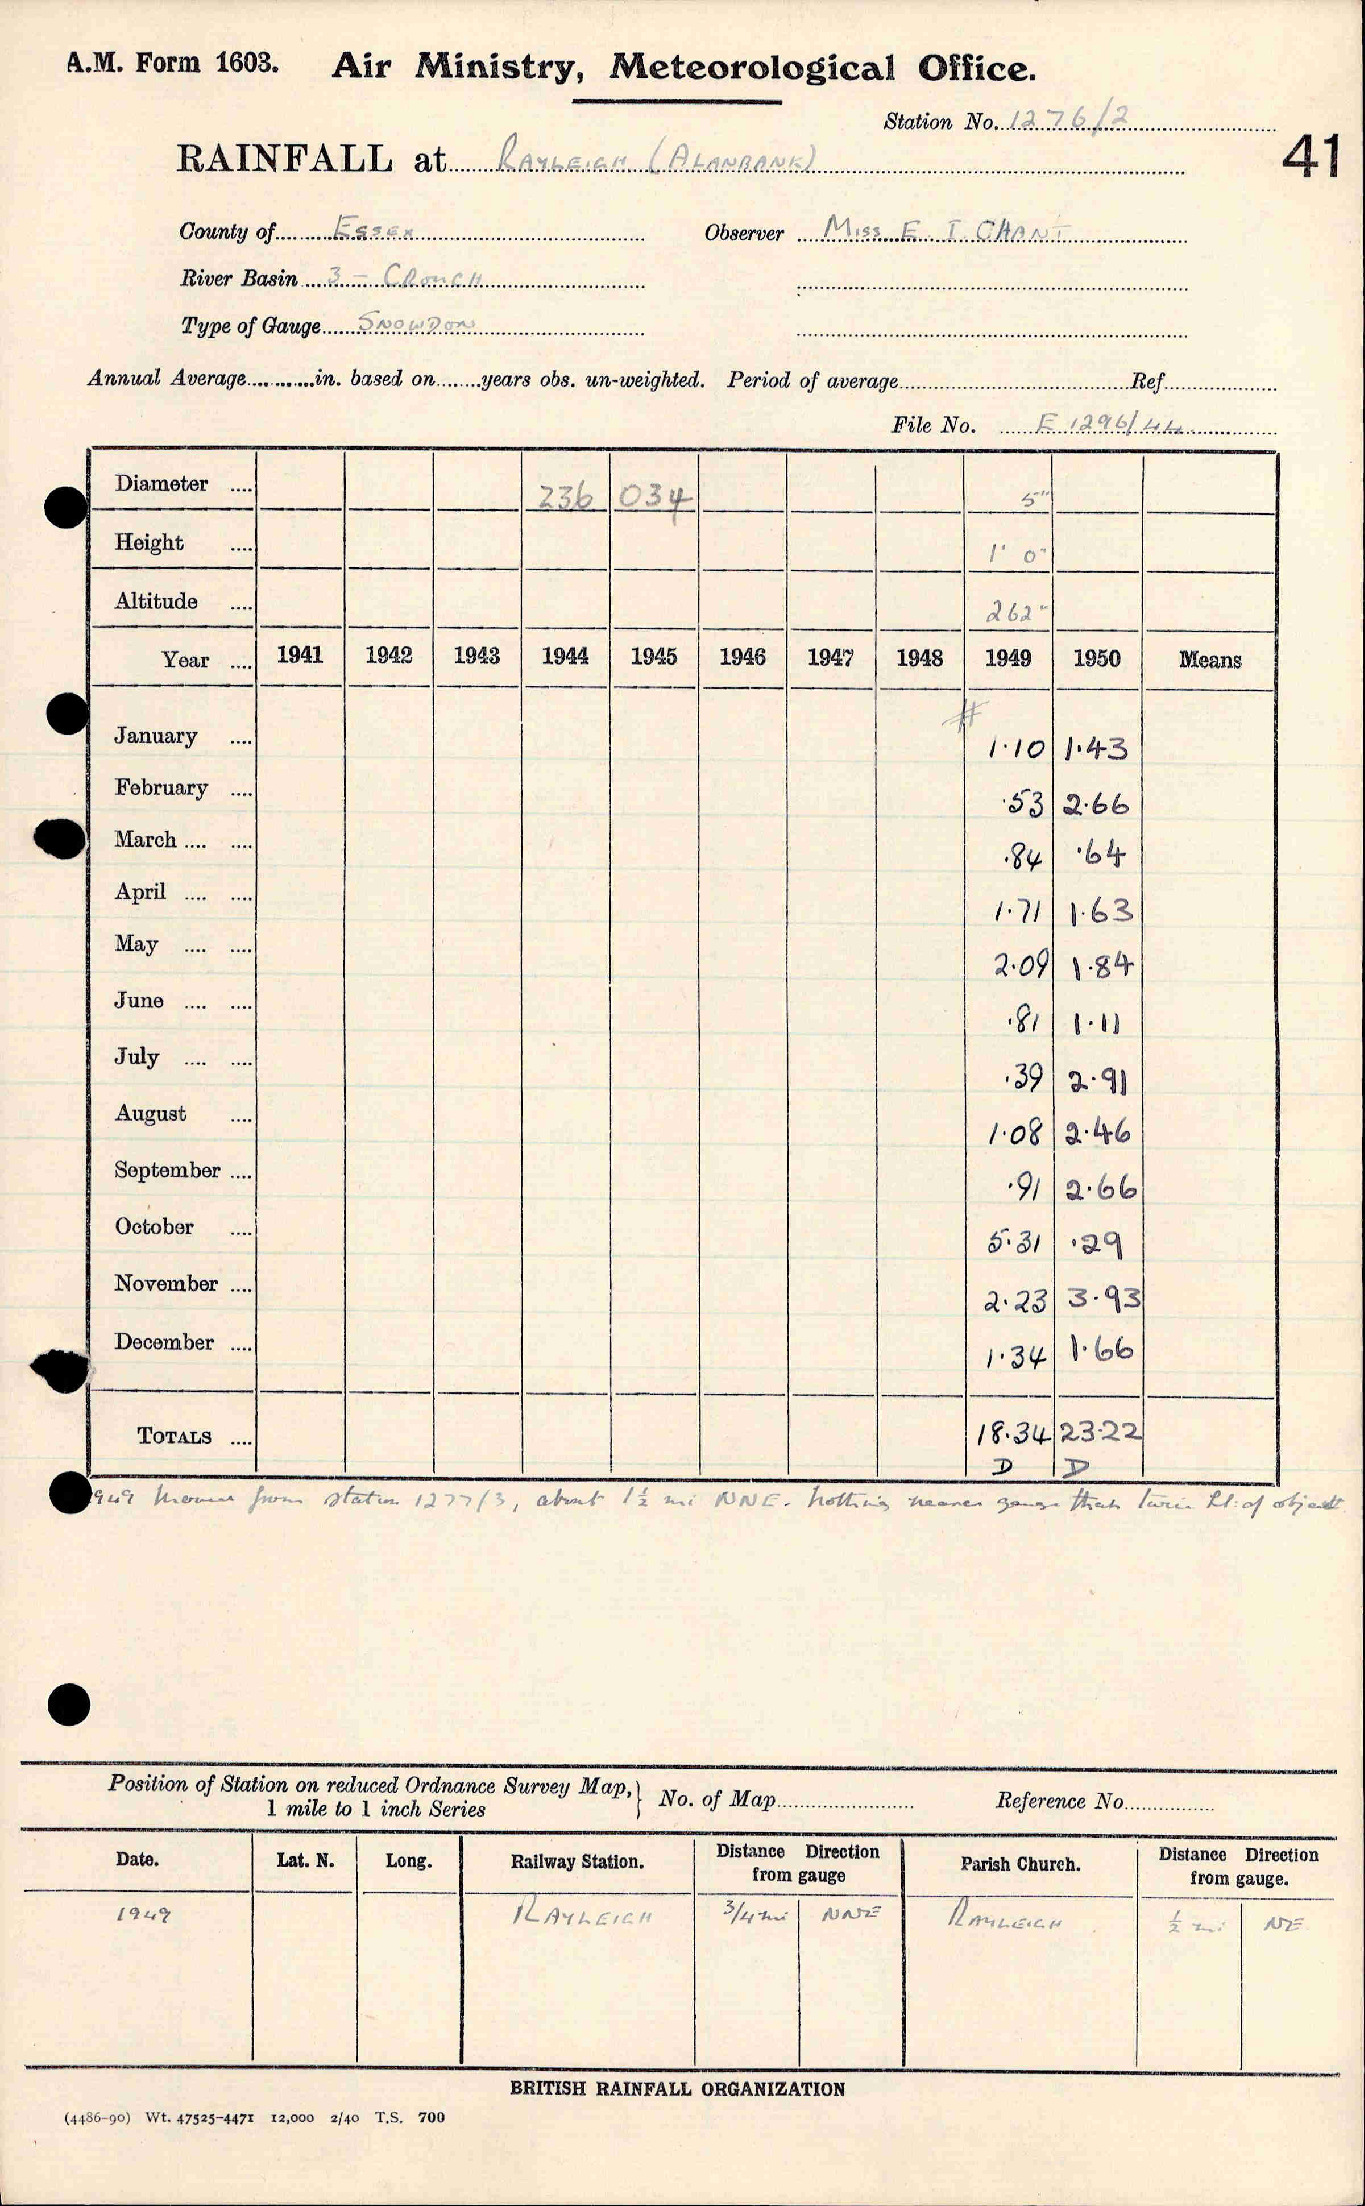 A.M. Form 1603. Air Ministry, Meteorological Office.
Station No. 1276/2
41
RAINFALL at RAYLEIGH (ALANBANK)
County of ESSEX Observer MISS E. I. CHANT
River Basin 3 - CROUCH
Type of Gauge SNOWDON
Annual Average in. based on years obs. un-weighted. Period of average Ref.
File No. E 1296/44
Diameter 236 034 5"
Height 1' 0"
Altitude 262'
Year 1941 1942 1943 1944 1945 1946 1947 1948 1949 1950 Means
#
January 1.10 1.43
February .53 2.66
March .84 .64
April 1.71 1.63
May 2.09 1.84
June .81 1.11
July .39 2.91
August 1.08 2.46
September .91 2.66
October 5.31 .29
November 2.23 3.93
December 1.34 1.66
TOTALS 18.34 23.22
D D
1949 Moved from station 1277/3, about 1½ mi NNE. Nothing nearer gauge than twice ht. of object
Position of Station on reduced Ordnance Survey Map, } No. of Map Reference No.
1 mile to 1 inch Series
Date. Lat. N. Long. Railway Station. Distance Direction from gauge Parish Church. Distance Direction from gauge.
1949 RAYLEIGH 3/4 mi NNE RAYLEIGH ½ mi NE
BRITISH RAINFALL ORGANIZATION
(4486-90) Wt. 47525-4471 12,000 2/40 T.S. 700